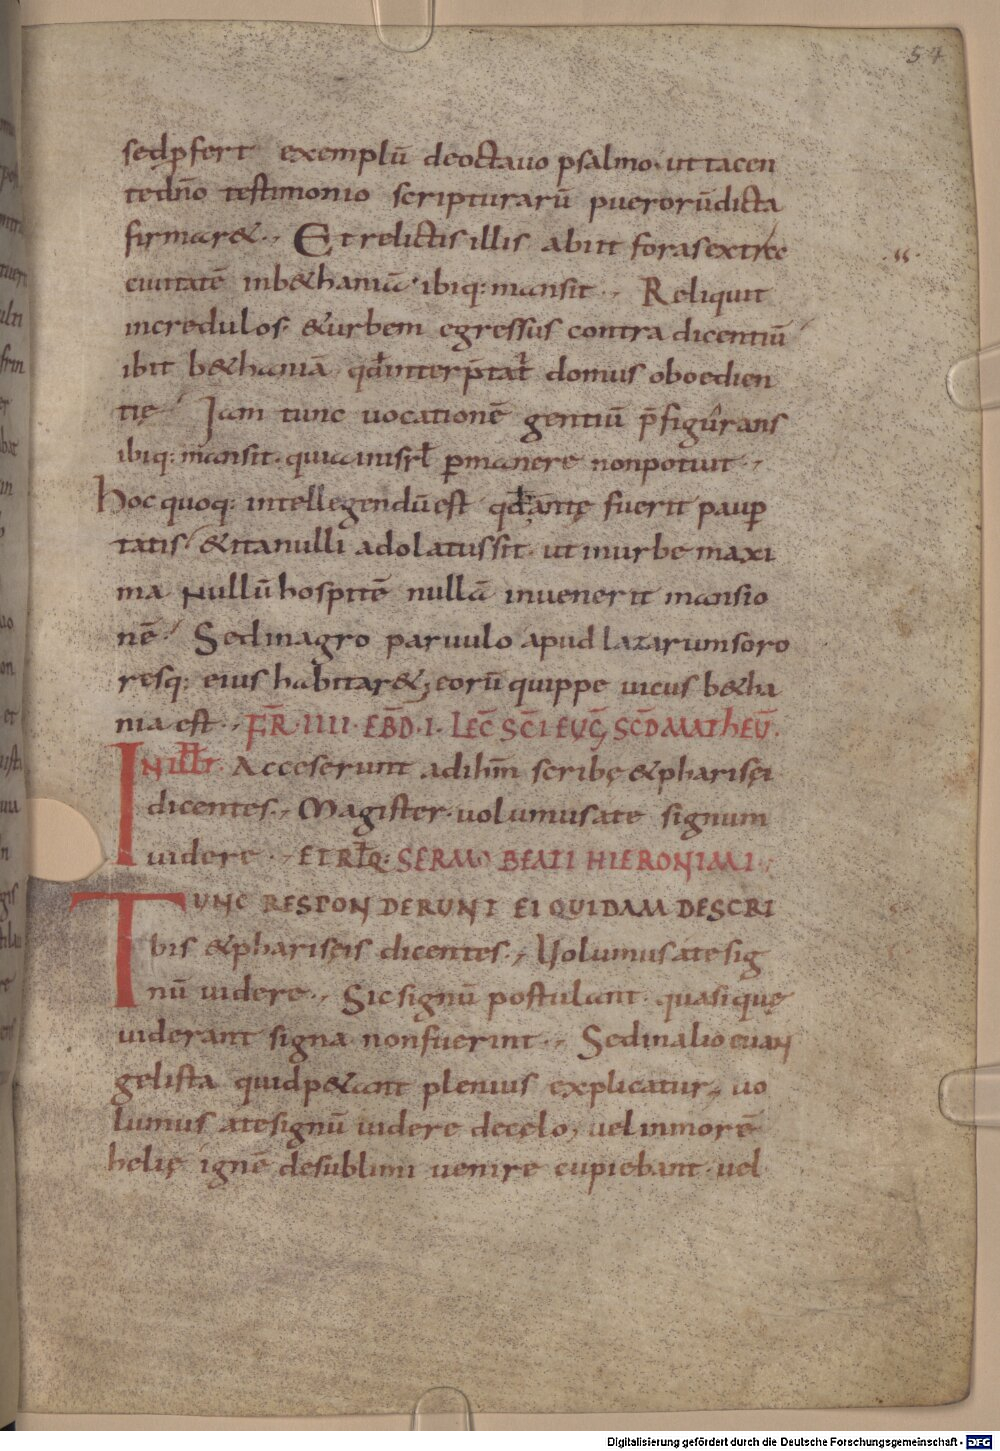 54
sedp̄fert exemplū deoctauo psalmo· uttacen
tedn̄o testimonio scripturarū puerorūdicta
firmar&· Et relictis illis abiit forasextra
ciuitatē inb&haniā· ibiq: mansit· Reliquit
incredulos· &urbem egressus contradicentiū
ibit b&haniā qđinterp̄tat̄ domus oboedien
tię· Iam tunc uocationē gentiū p̄figurans
ibiq: mansit· quiainisrł ꝑmanere nonpotuit·
hoc quoq: intellegendūest qđtantę fuerit pauꝑ
tatis· &itanulli adolatussit· ut inurbe maxi
ma nullū hospitē nullā inuenerit mansio
nē· Sedinagro paruulo apud lazarumsoro
resq: eius habitar&; eorū quippe uicus b&ha
nia est· FR̄ IIII EBD̄·I· LEC̄ SC̄I EUḠ SCD̄MATHEŪ·
IN illt̄· Acceserunt adihm̄ scribę &pharisęi
dicentes· Magister· uolumusate signum
uidere· ETRŁQ: SERMO BEATI HIERONIMI·
TUNC RESPONDERUNT EI QUIDAM DESCRI
bis &phariseis dicentes· Uolumusatesig
nū uidere· Sicsignū postulant· quasiquę
uiderant signa nonfuerint· Sedinalio euan
gelista quidp&ant plenius explicatur· uo
lumus atesignū uidere decęlo, uelinmorē
helię ignē desublimi uenire cupiebant· uel
Digitalisierung gefördert durch die Deutsche Forschungsgemeinschaft - DFG